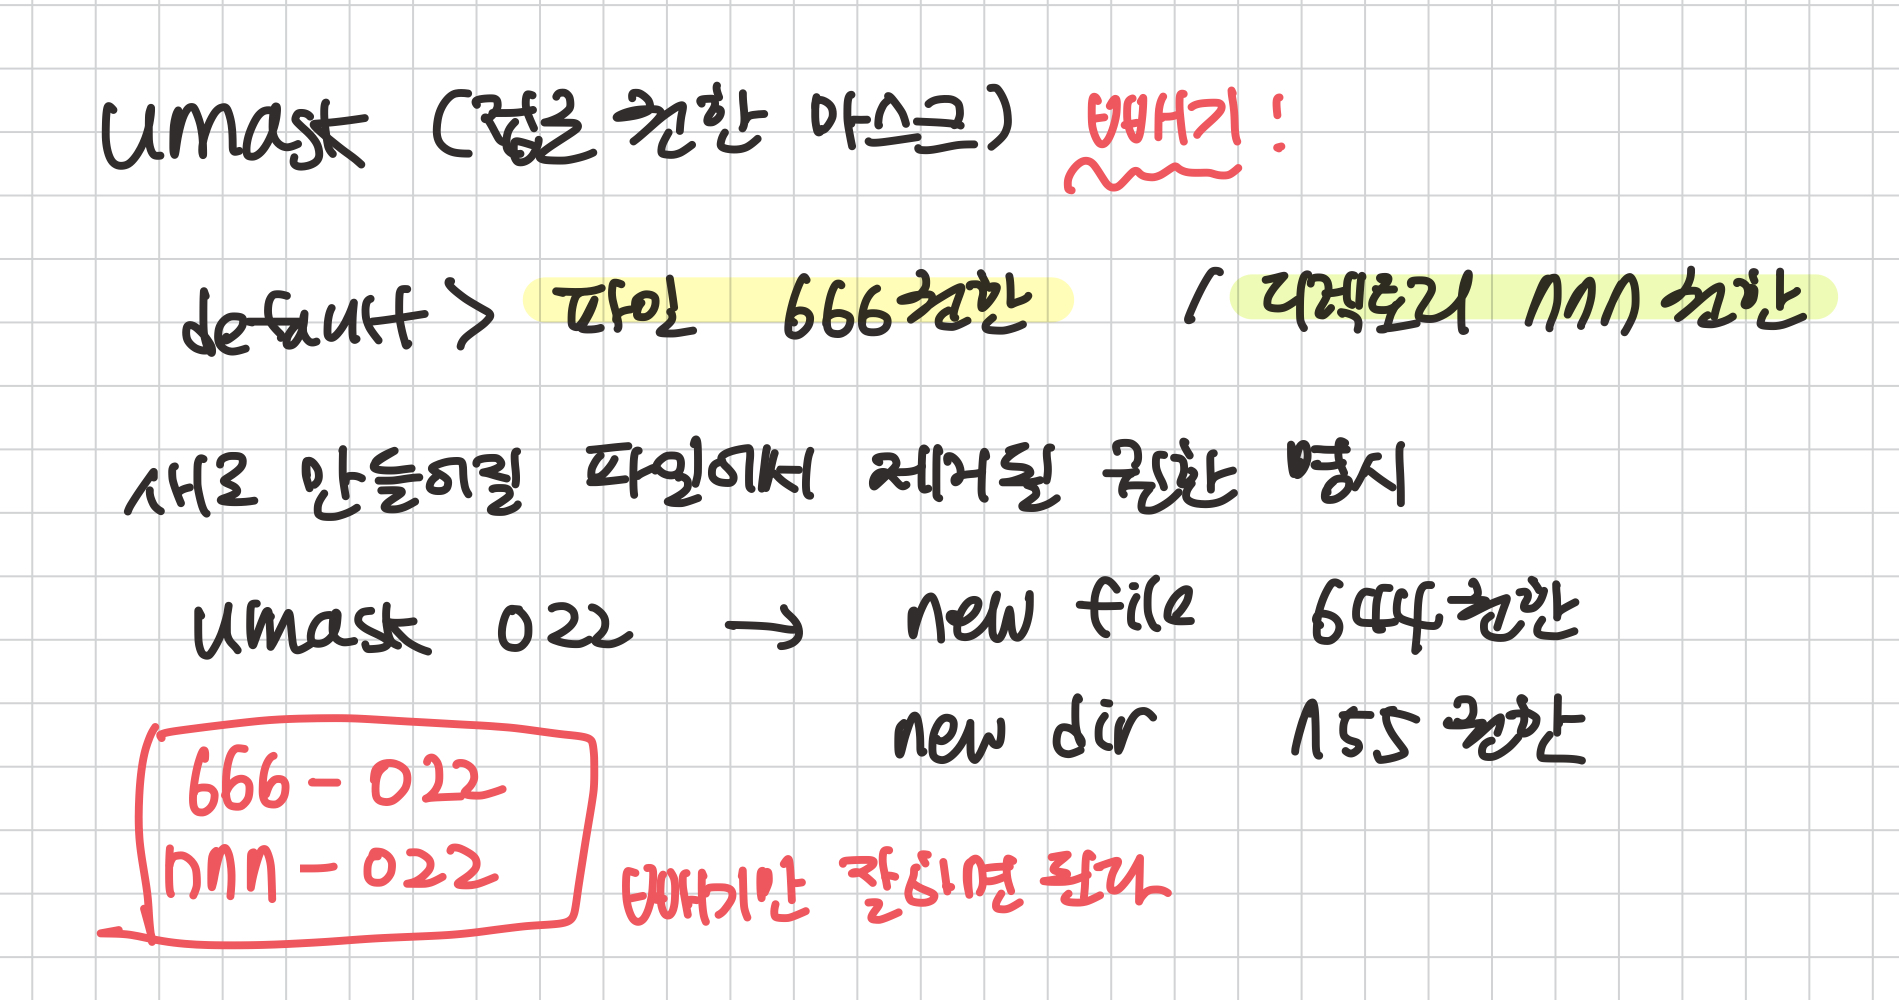 umask (접근 권한 마스크) 빼기!
default > 파일 666 권한 / 디렉토리 777 권한
새로 만들어질 파일에서 제거될 권한 명시
umask 022 → new file 644 권한
new dir 755 권한
666 - 022
777 - 022
빼기만 잘하면 된다